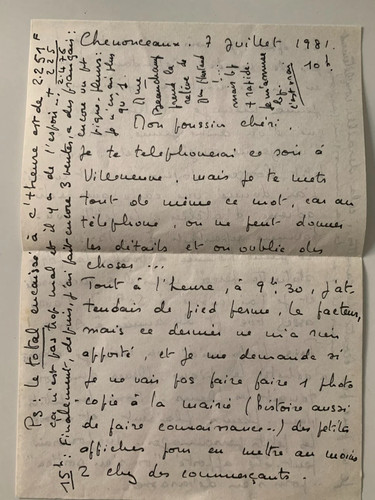 Chenonceaux. 7 Juillet 1981.
10h
Mon poussin chéri.
Je te téléphonerai ce soir à
Villeneuve, mais je te mets
tout de même ce mot, car au
téléphone, on ne peut donner
les détails et on oublie des
choses ...
Tout à l'heure, à 9h.30, j'at-
tendais de pied ferme, le facteur,
mais ce dernier ne m'a rien
apporté, et je me demande si
je ne vais pas faire faire 1 photo
copie à la mairie (histoire aussi
de faire connaissance..) des petites
affiches pour en mettre au moins
2 chez des commerçants.
PS: Le total encaissé à c't'heure est de 2.251F
ça n'est pas trop mal et il y a de l'espoir.. + 225
2.476
15h: Finalement, depuis, j'ai fait encore 3 ventes, à des français:
encore un
pique fleurs:
je n'en ai plus
qu'1
Mme
Beauchamp
prend la
relève de
Mme
mais bf
+ rapide.